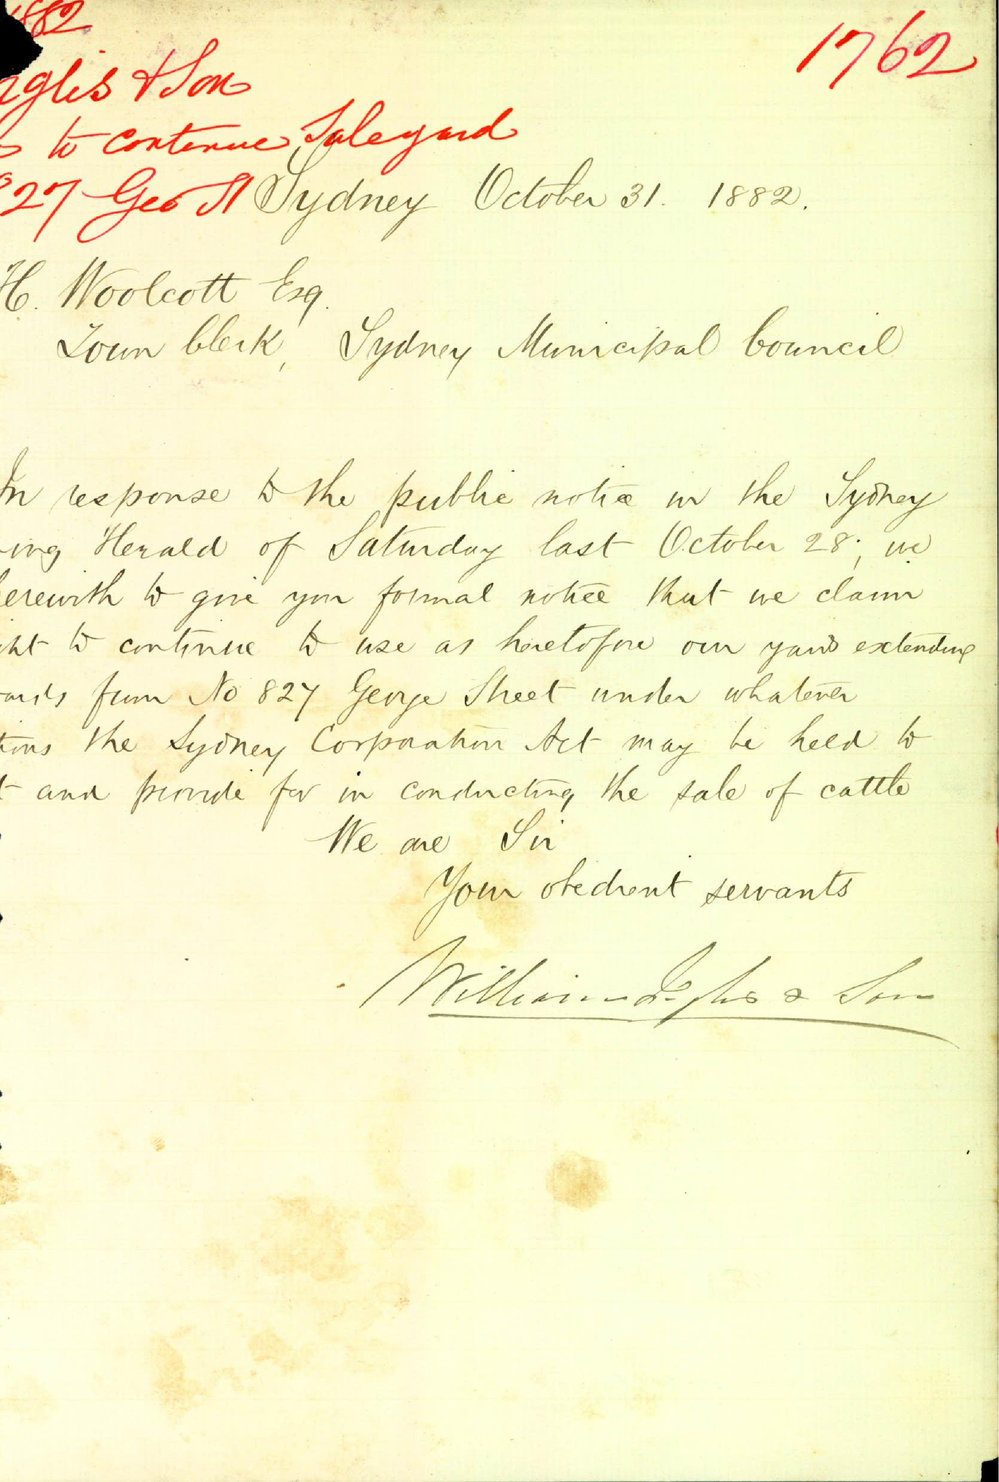 1882
1762
nglis & Son
to continue Saleyard
827 Geo St
Sydney October 31. 1882.
H. Woolcott Esq.
Town Clerk, Sydney Municipal Council
In response to the public notice in the Sydney
ing Herald of Saturday last October 28, we
herewith to give you formal notice that we claim
ht to continue to use as heretofore our yards extending
ards from No 827 George Street under whatever
tions the Sydney Corporation Act may be held to
t and provide for in conducting the sale of cattle
We are Sir
Your obedient servants
William Inglis & Son